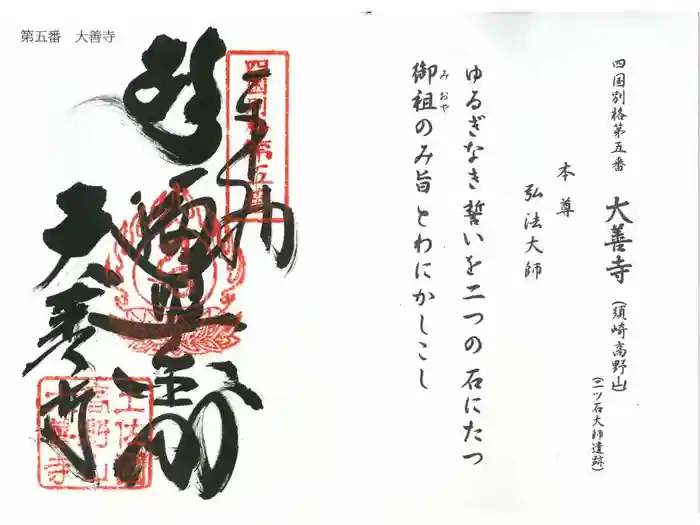 第五番　大善寺
四国別格第五番　大善寺（須崎高野山）
（二ツ石大師遺跡）
本尊
弘法大師
ゆるぎなき誓いを二つの石にたつ
御祖のみ旨とわにかしこし
みおや
奉納
四国別格第五番
大善寺